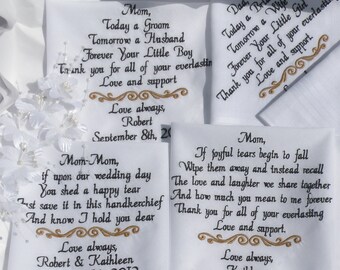 Mom,
Today a Groom
Tomorrow a Husband
Forever Your Little Boy
Thank you for all of your everlasting
Love and support
Love always,
Robert
September 8th, 2
Dad,
Today a
Tomorrow a
Forever Your Little
Thank you for all of your everlasting
Love and support
Mom-Mom,
If upon our wedding day
You shed a happy tear
Just save it in this handkerchief
And know I hold you dear
Love always,
Robert & Kathleen
Mom,
If joyful tears begin to fall
Wipe them away and instead recall
The love and laughter we share together
And how much you mean to me forever
Thank you for all of your everlasting
Love and support.
Love always,